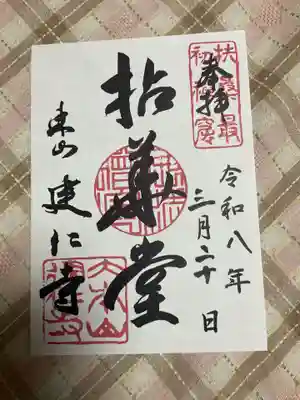 奉拝
扶桑最初禅窟
令和八年
三月二十日
拈華堂
東山建仁寺